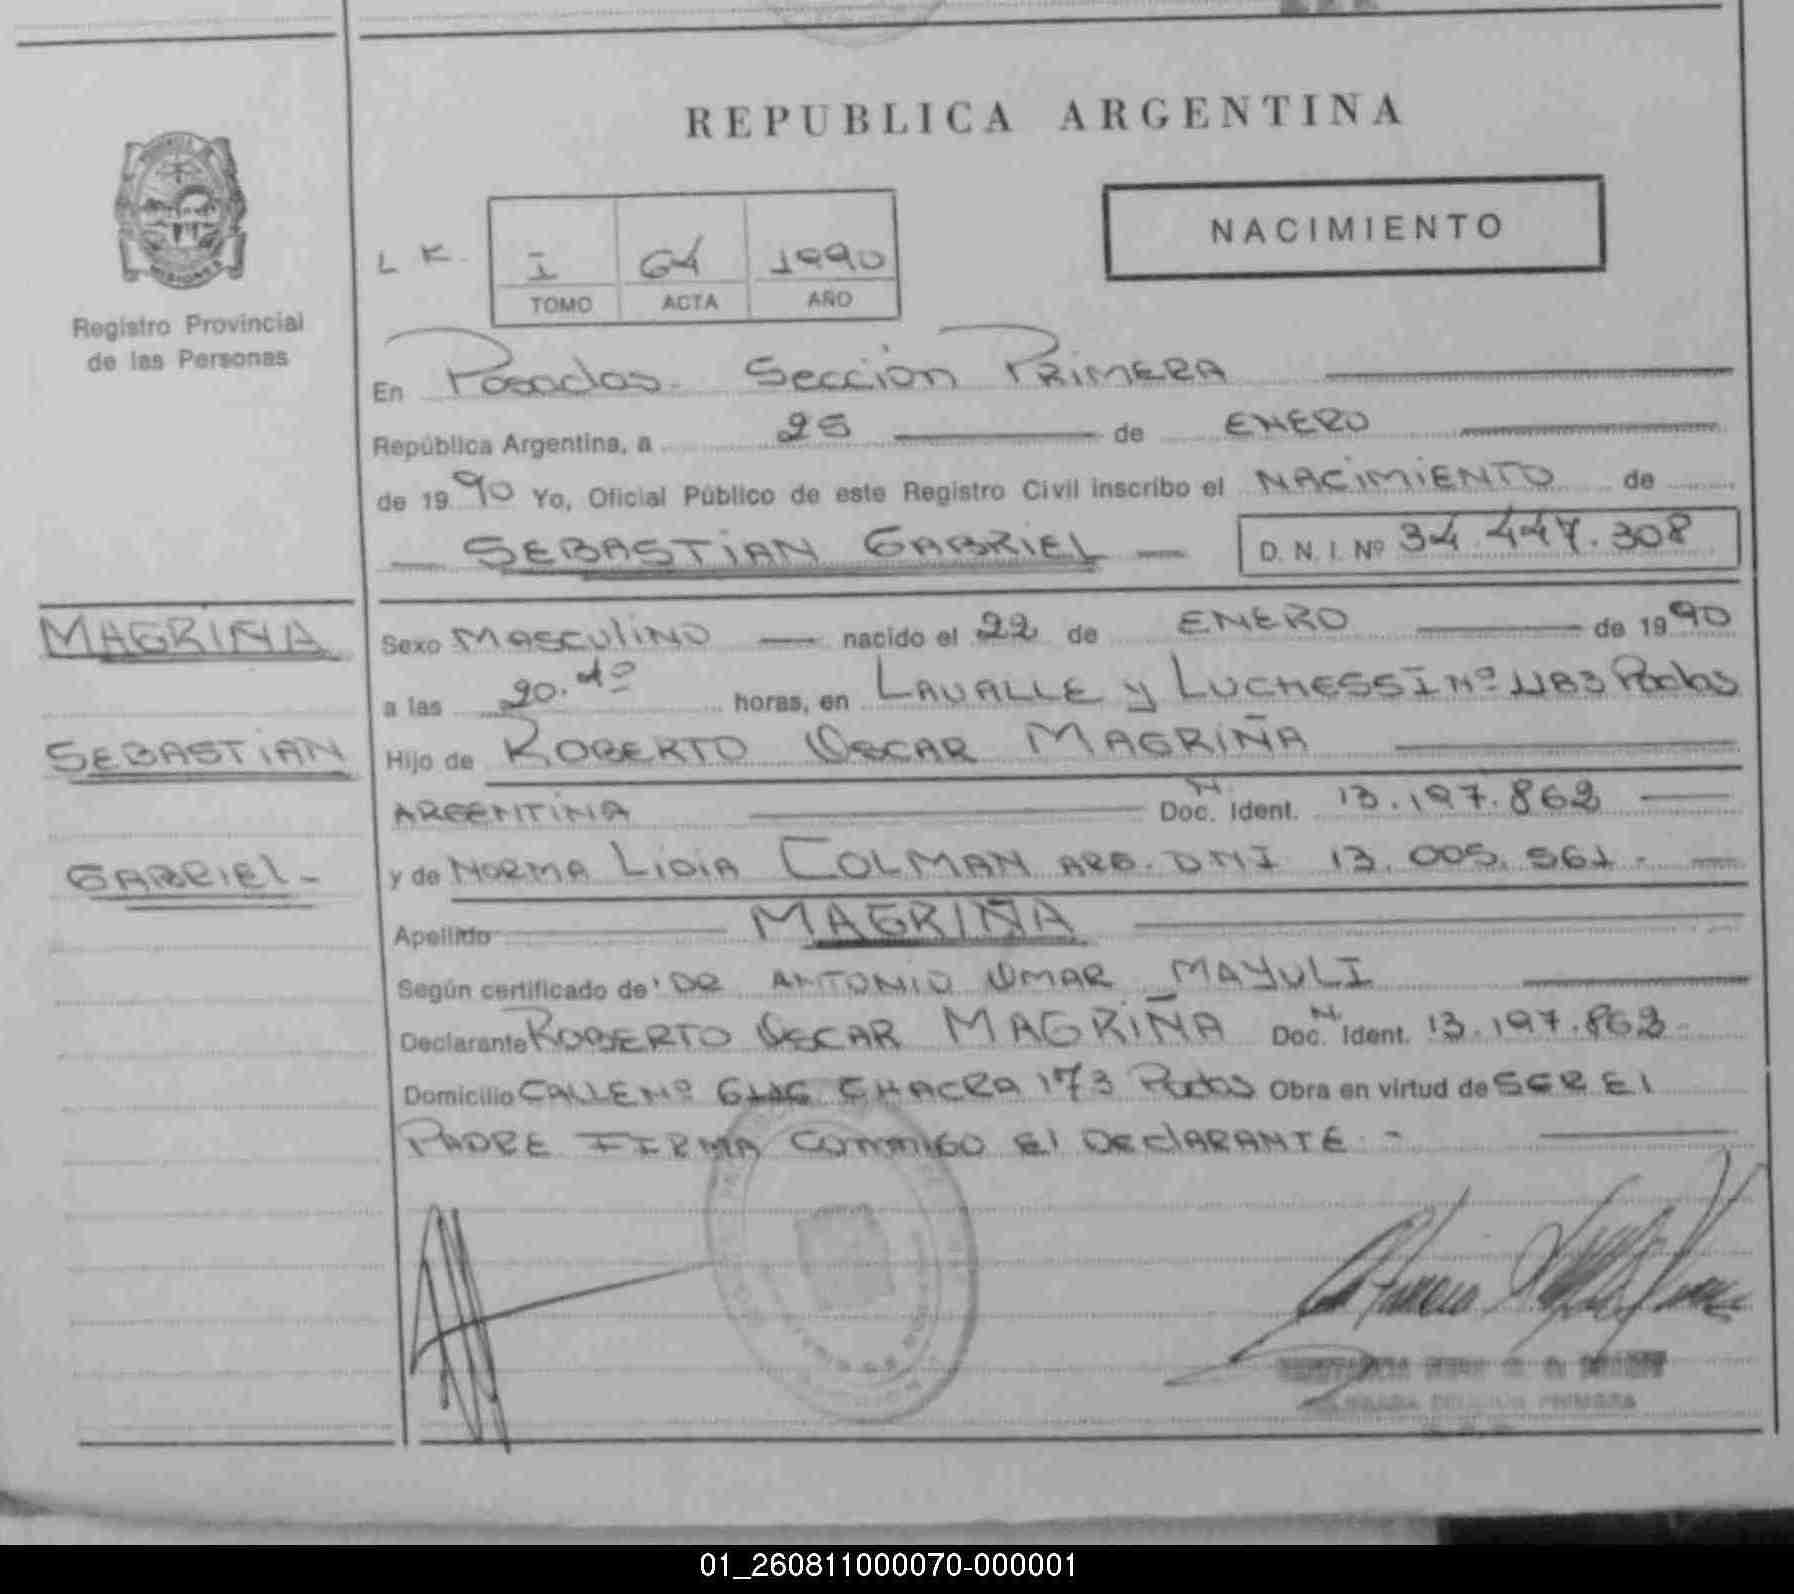 REPUBLICA ARGENTINA
NACIMIENTO
L K.
I 64 1990
TOMO ACTA AÑO
Registro Provincial
de las Personas
En Posadas Sección PRIMERA
República Argentina, a 25 de ENERO
de 1990 Yo, Oficial Público de este Registro Civil inscribo el NACIMIENTO de
SEBASTIAN GABRIEL D. N. I. Nº 34.447.308
MAGRIÑA
SEBASTIAN
GABRIEL-
Sexo MASCULINO nacido el 22 de ENERO de 1990
a las 20.40 horas, en LAVALLE y LUCHESSI Nº 1183 Podas
Hijo de ROBERTO OSCAR MAGRIÑA
ARGENTINA Doc. Ident. 13.197.862
y de NORMA LIDIA COLMAN ARG. DNI 13.005.561.
Apellido MAGRIÑA
Según certificado de DR ANTONIO OMAR MAYULI
Declarante ROBERTO OSCAR MAGRIÑA Doc. Ident. 13.197.862-
Domicilio CALLE Nº CHACRA 173 Podas Obra en virtud de SER El
PADRE FIRMA CONMIGO El DEClARANTE.-
01_260811000070-000001